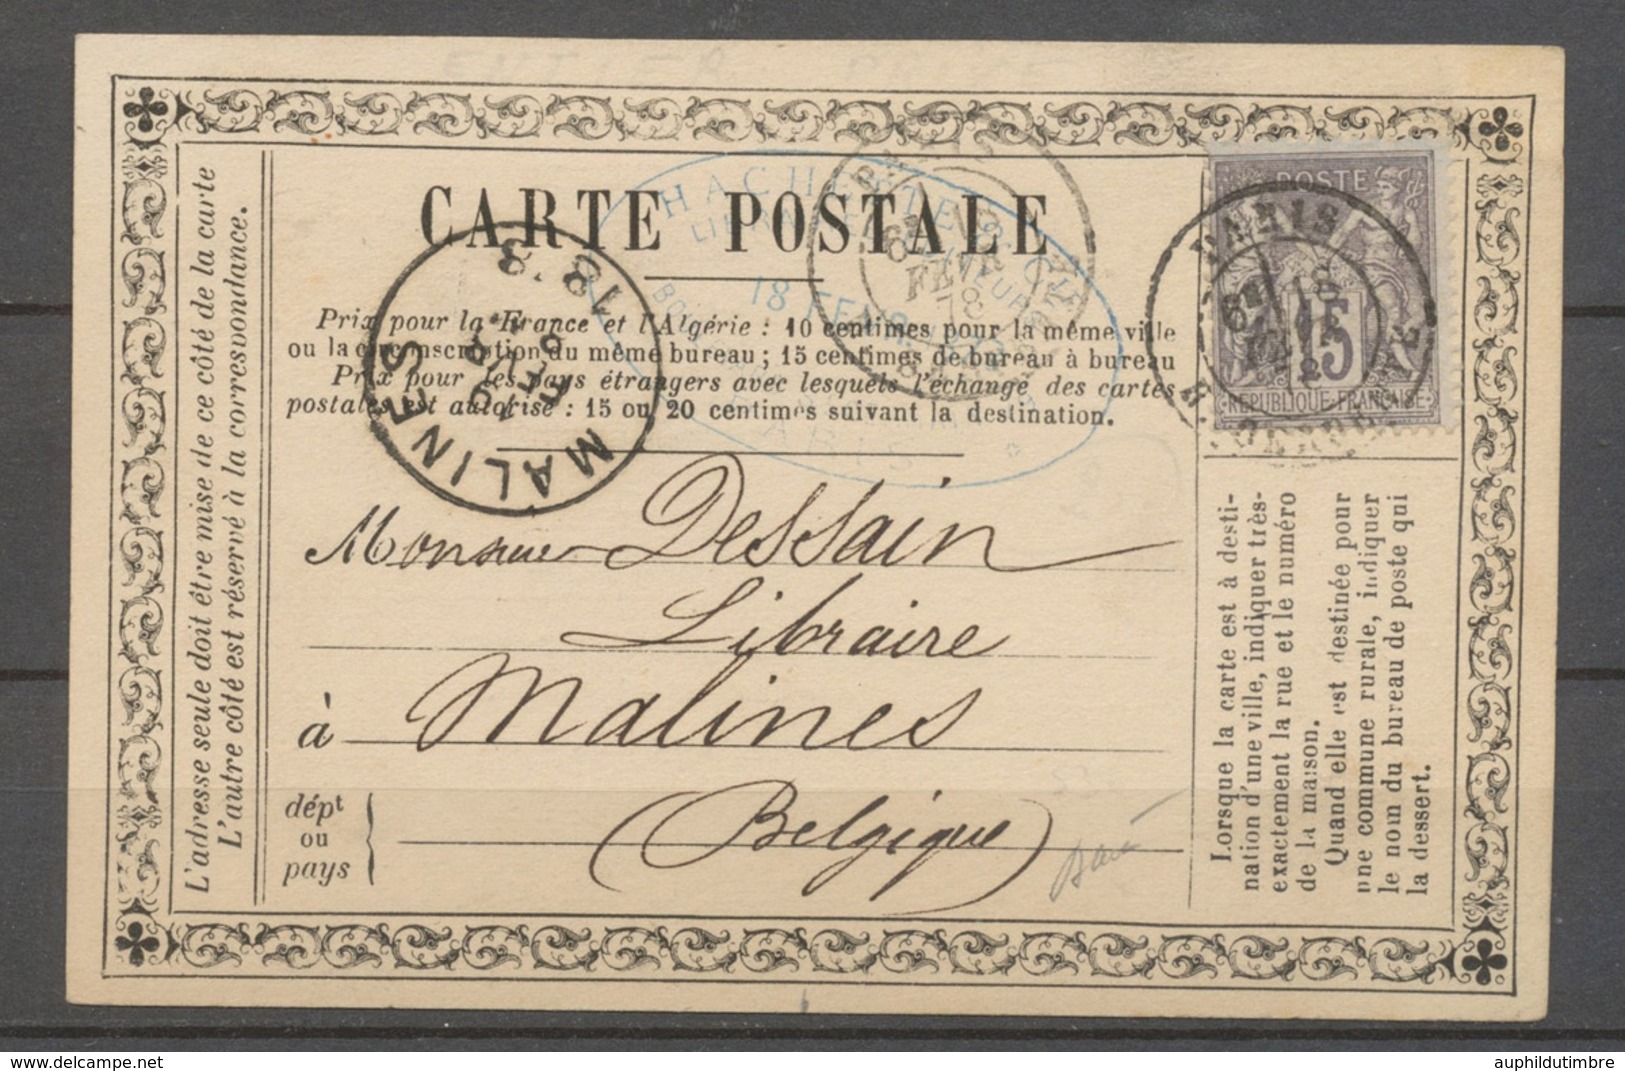 CARTE POSTALE
Prix pour la France et l'Algérie : 10 centimes pour la même ville
ou la circonscription du même bureau ; 15 centimes de bureau à bureau
Prix pour les pays étrangers avec lesquels l'échange des cartes
postales est autorisé : 15 ou 20 centimes suivant la destination.
Monsieur Dessain
Libraire
à Malines
dépt
ou
pays
(Belgique)
L'adresse seule doit être mise de ce côté de la carte
L'autre côté est réservé à la correspondance.
Lorsque la carte est à desti-
nation d'une ville, indiquer très-
exactement la rue et le numéro
de la maison.
Quand elle est destinée pour
une commune rurale, indiquer
le nom du bureau de poste qui
la dessert.
POSTE
15
REPUBLIQUE FRANÇAISE
PARIS
18
FEVR
MALINES
19 FEVR
1878
HACHETTE & CIE
18 FEVR
PARIS
18
FEVR
78
auphildutimbre
www.delcampe.net